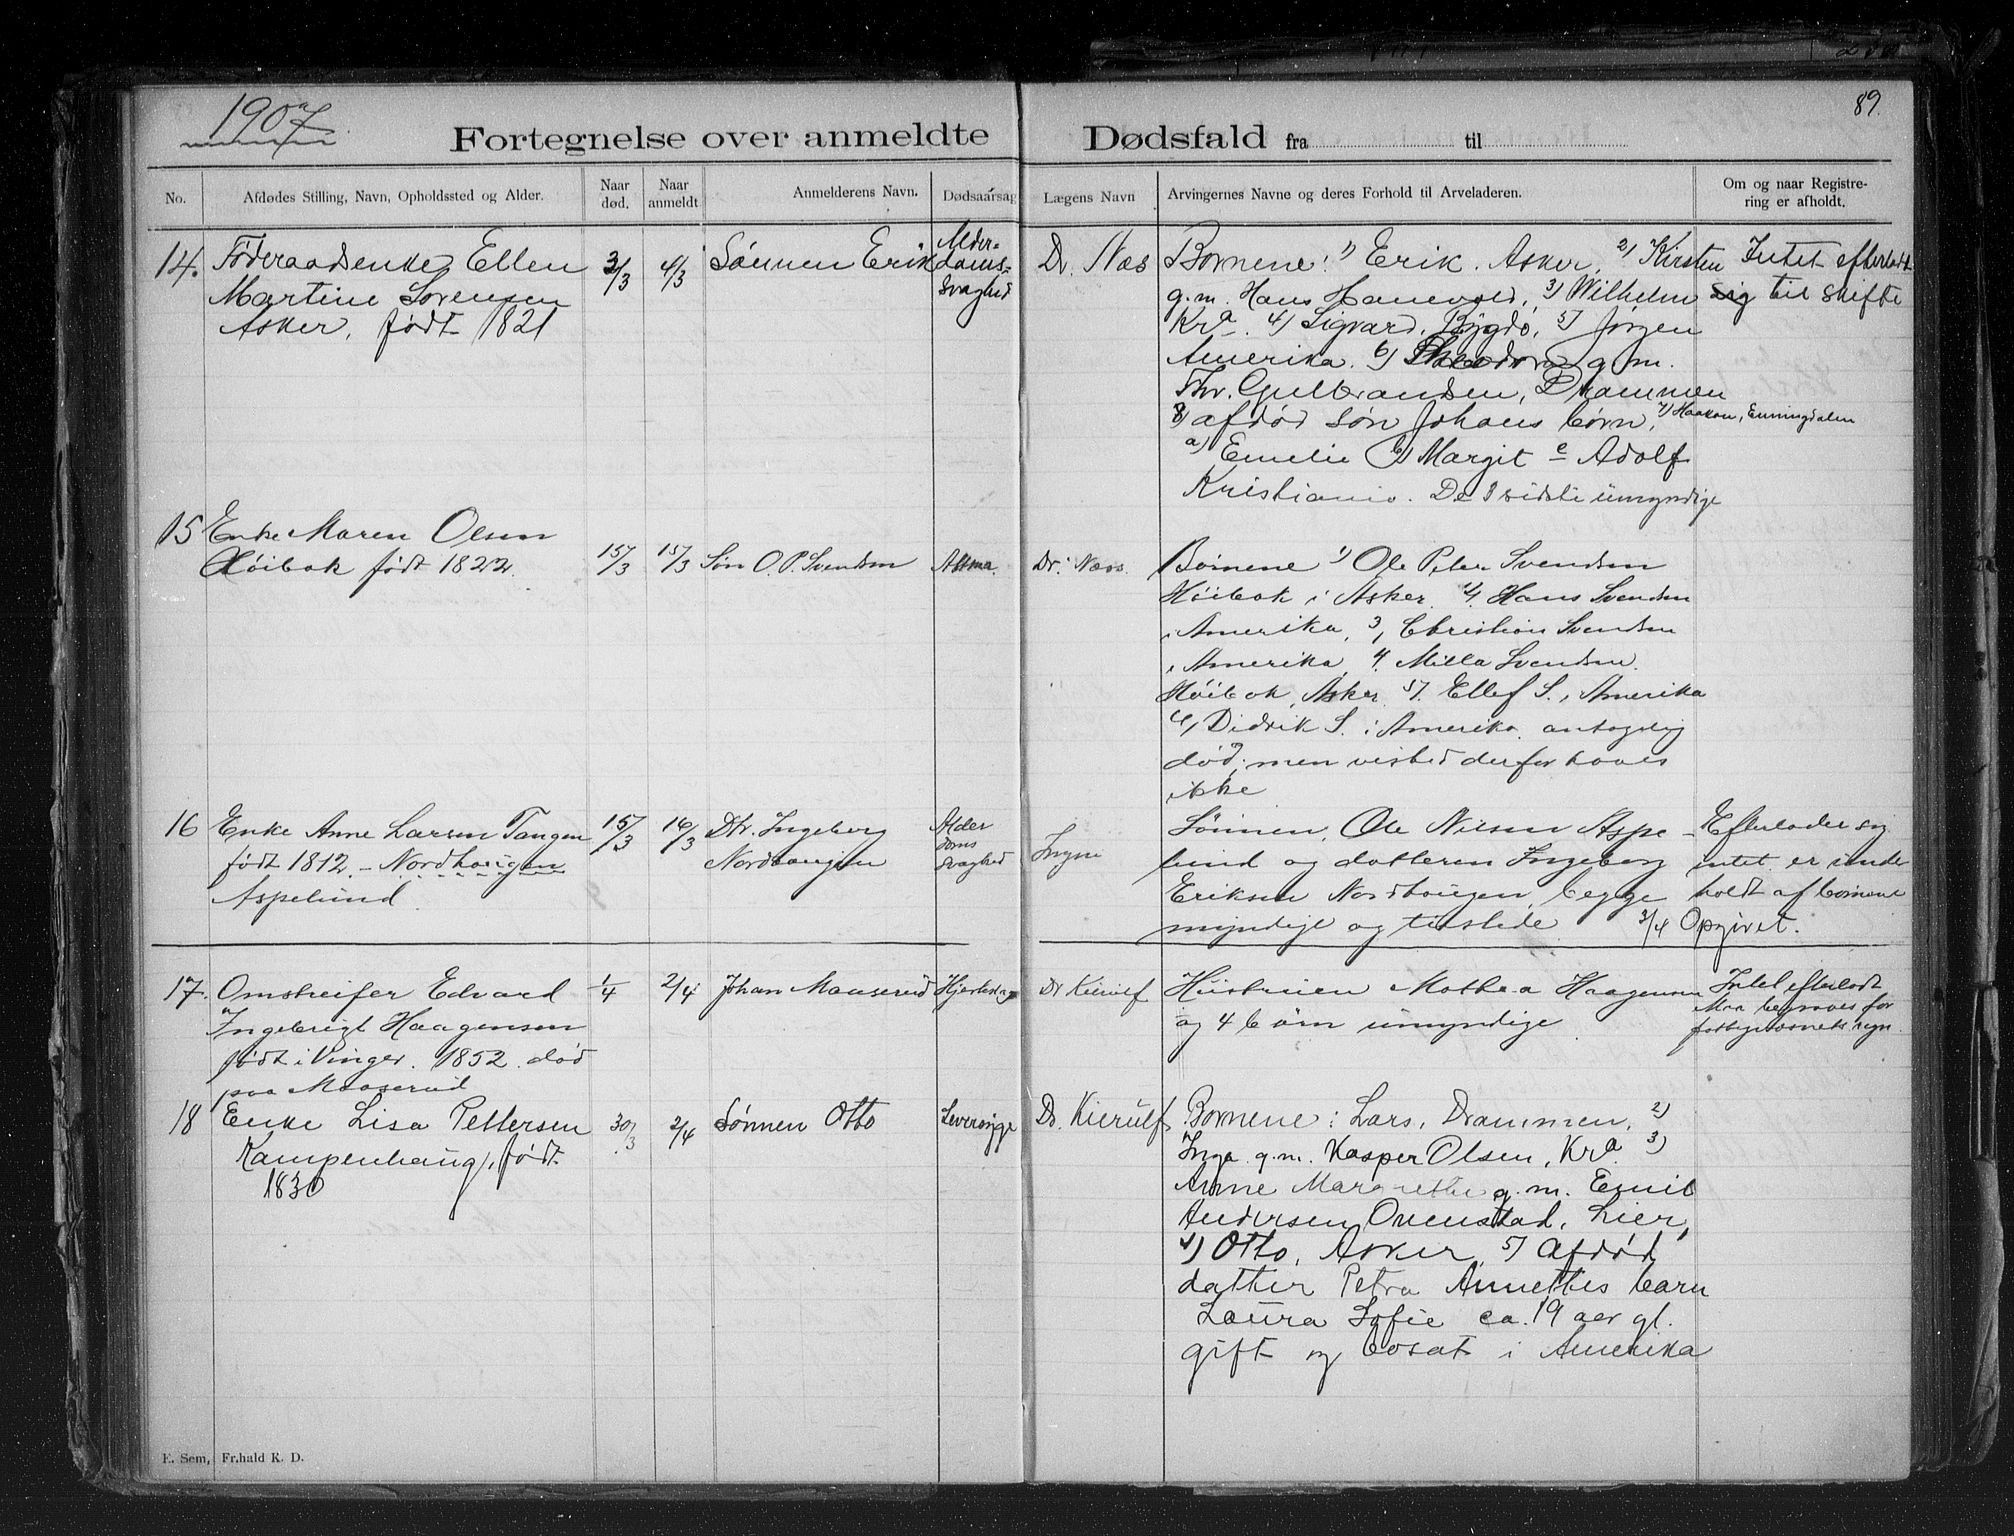 1907
89.
Fortegnelse over anmeldte Dødsfald fra til
No.
Afdødes Stilling, Navn, Opholdssted og Alder.
Naar død.
Naar anmeldt.
Anmelderens Navn.
Dødsaarsag
Lægens Navn
Arvingernes Navne og deres Forhold til Arveladeren.
Om og naar Registre-
ring er afholdt.
14. Føderaadsenke Ellen
Martine Sorensen
Asker, født 1821
3/3
4/3
Sønnen Erik
Alder-
doms-
svaghed
Dr. Næs
Børnene: 1) Erik. Asker, 2) Kirsten
g.m. Hans Hanevold, 3) Wilhelm
Kra. 4) Sigvard, Bygdø, 5) Jørgen
Amerika. 6) Theodora g.m.
Thv. Gulbrandsen, Drammen
7) Haakon, Enningdalen
8) afdød søn Johans børn,
a) Emelie b) Margit c Adolf
Kristiania. De 3 sidste umyndige
Intet efterladt
sig til skifte
15 Enke Maren Olsen
Høibok født 1822.
15/3
15/3
Søn O. P. Svendsen
Astma.
Dr. Næss.
Børnene 1) Ole Peter Svendsen
Høibok i Asker. 2/ Hans Svendsen
i Amerika, 3, Christian Svendsen
i Amerika, 4. Milla Svendsen.
Høibok, Asker 5/. Ellef S. i Amerika
6/ Didrik S. i Amerika. antagelig
død, men vished derfor haves
ikke
16 Enke Anne Larsen Tangen
født 1812. - Nordhaugen
Aspelund
15/3
16/3
Dtr. Ingeborg
Nordhaugen
Alder
doms
svaghed
Ingen
Sønnen, Ole Nilsen Aspe-
lund og datteren Ingeborg
Eriksen Nordhaugen, begge
myndige og tilstede
Efterlader sig
intet, er under
holdt af børnene
3/4 Opgivet.
17. Omstreifer Edvard
Ingebrigt Haagensen
født i Vinger. 1852. død
paa Maaserud
1/4
2/4
Johan Maaserud
Dr Kierulf
Hustruen Mathea Haagensen
og 4 børn umyndige
Intet efterladt
Maa begraves for
fattigvæsenets regn.
18 Enke Lisa Pettersen
Kampenhaug, født
1830
30/3
2/4
Sønnen Otto
Leversyge
Dr. Kierulf
Børnene: Lars, Drammen, 2)
Inga g.m. Kasper Olsen, Kra. 3)
Anne Margrethe g.m. Emil
Andersen Ovenstad, Lier,
4) Otto, Asker, 5) Afdød
datter Petra Annettes barn
Laura Sofie ca. 19 aar gl.
gift og bosat i Amerika
E. Sem, Fr.hald K. D.